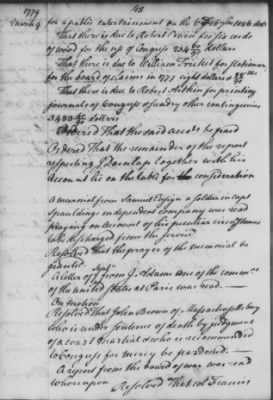 48
1779
March 4
for a public entertainment on the
That there is due to Robert for six cords
of wood for the use of Congress 234 dollars
That there is due to William Trickel for stationary
for the board of claims in 1777 eight dollars &
That there is due to Robert Aitkin for printing
journals of Congress & sundry other contingencies
3483 dollars
Ordered That the said accots be paid
Ordered That the remainder of the report
respecting J Dunlap together with his
Account lie on the table for consideration
A memorial from Samuel a soldier in capt
Spauldings independent company was read
praying on account of his peculiar circumstances
to be discharged from the service
Resolved That the prayer of the memorial be
granted
A letter of from J. Adams one of the commrs
of the united states at Paris was read. —
On motion
Resolved That John Brown of Massachusetts bay
who is under sentence of death by judgment
of a court martial & who is recommended
to Congress for mercy be pardoned. —
A report from the board of war was read
whereupon
Resolved That col Francis